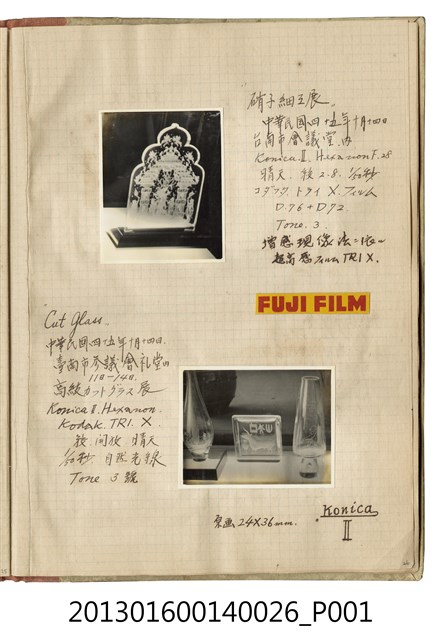 硝子細工展。
中華民國四十五年十月十四日
台南市會議堂内
Konica II. Hexanon F. 28
晴天. 絞 2.8. 1/50秒
コダック. トライ X. フィルム
D.76 + D72.
Tone. 3
増感現像法ニ依ル
超高感フィルム TRI X.
FUJI FILM
Cut Glass.
中華民國四十五年十月十四日.
臺南市參議會礼堂内
11日-14日.
高級カットグラス展
Konica II. Hexanon.
Kodak. TRI. X.
絞 開放 晴天
1/50秒. 自然光線
Tone 3 號
原画 24X36mm.
Konica
II
201301600140026_P001